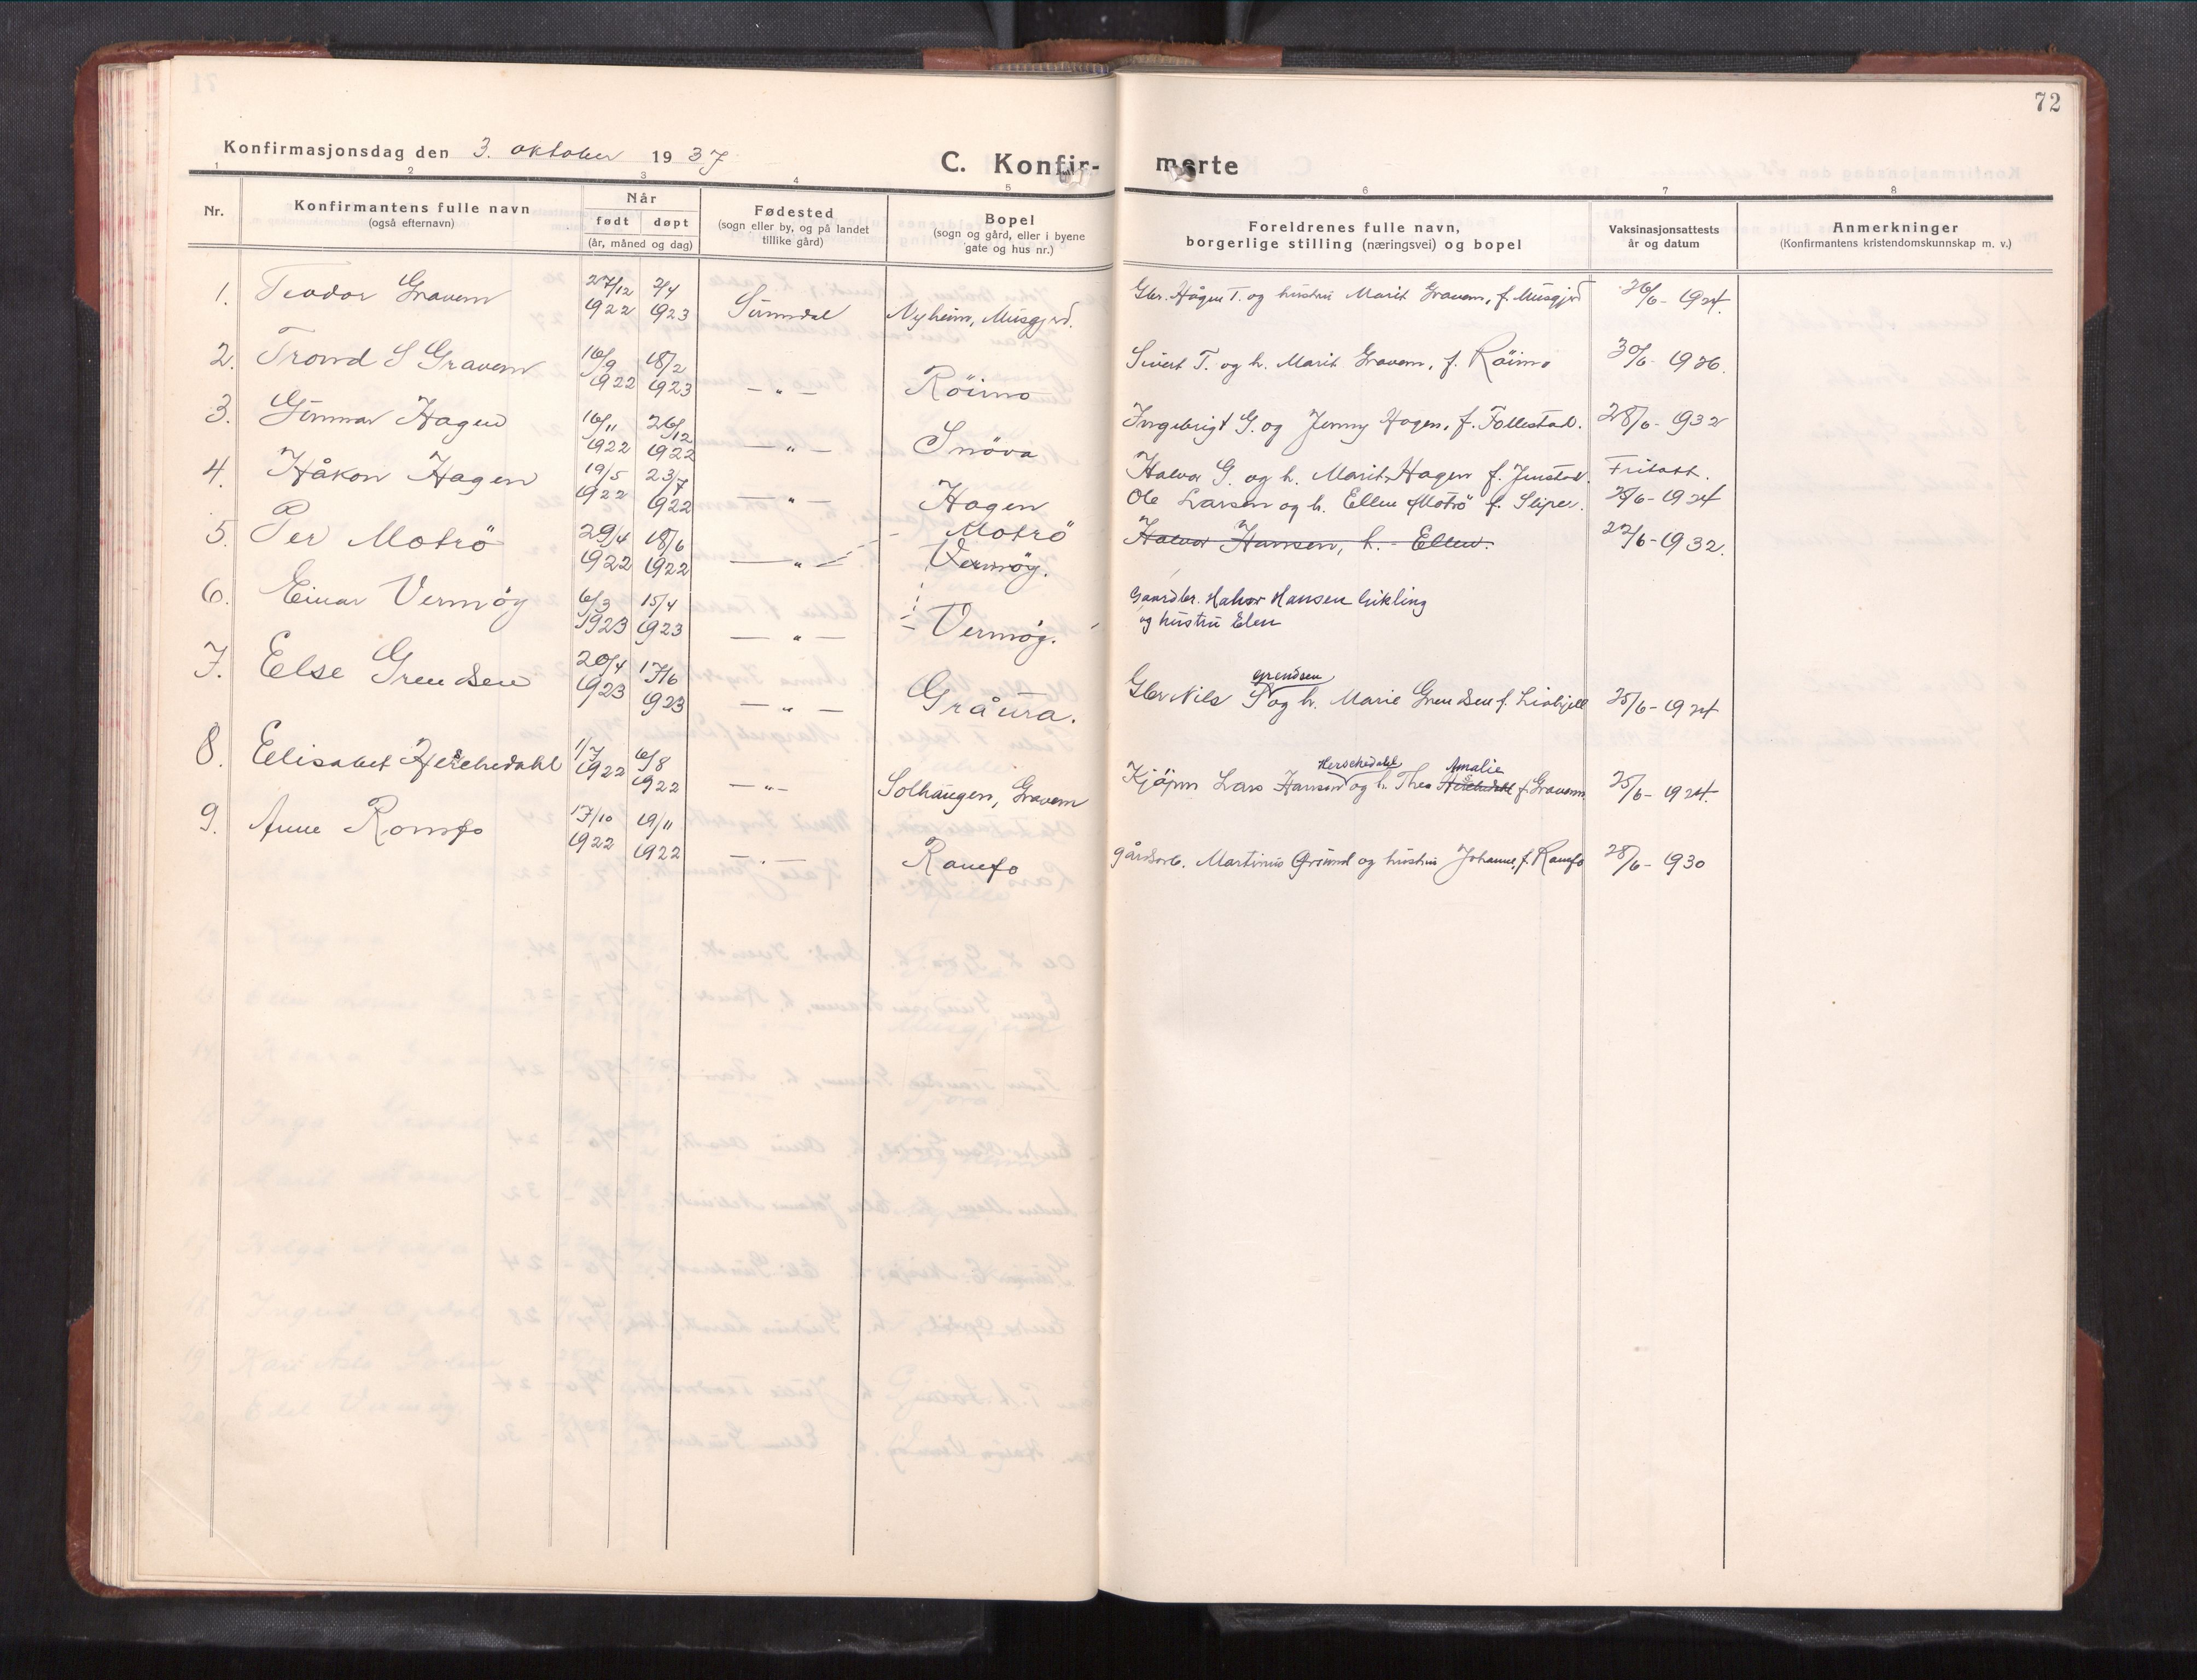 72
Konfirmasjonsdag den 3. oktober 1937
C. Konfir- merte
1 2 3 4 5 6 7 8
Nr.
Konfirmantens fulle navn
(også efternavn)
Når
født døpt
(år, måned og dag)
Fødested
(sogn eller by, og på landet
tillike gård)
Bopel
(sogn og gård, eller i byene
gate og hus nr.)
Foreldrenes fulle navn,
borgerlige stilling (næringsvei) og bopel
Vaksinasjonsattests
år og datum
Anmerkninger
(Konfirmantens kristendomskunnskap m. v.)
1. Teodor Gravem 27/12 1922 2/4 1923 Sunndal Nyheim, Musgjerd. Gbr. Hågen T. og hustru Marit Gravem, f. Musgjerd 26/6 - 1924.
2. Trond S Gravem 16/9 1922 18/2 1923 — " — Röimo Sivert T. og h. Marit Gravem, f. Röimo 30/6 - 1926.
3. Gunnar Hagen 16/11 1922 26/12 1922 — " — Snöva Ingebrigt G. og Jenny Hagen, f. Follestad. 28/6 - 1932
4. Håkon Hagen 19/5 1922 23/7 1922 — " — Hagen Halvor G. og h. Marit Hagen f. Jenstad. Fritatt.
5. Per Motrö 29/4 1922 18/6 1922 — " — Motrö Ole Larsen og h. Ellen Motrö f. Sliper. 25/6 - 1924
Vermøy. Halvor Hansen, h. - Ellen. 22/6 - 1932.
6. Einar Vermøy 6/3 1923 15/4 1923 — " — Vermøy. Gaardbr. Halvor Hansen Gikling
og hustru Elen
7. Else Grendsen 20/4 1923 17/6 1923 — " — Gråura. Gbr Nils S Grendsen og h. Marie Grendsen f. Liahjell 25/6 - 1924
8. Elisabet Herschedahl 1/7 1922 6/8 1922 — " — Solhaugen, Gravem Kjøpm Lars Hansen Herschedahl og h. Thea Herschedahl Amalie f. Gravem 25/6 - 1924.
9. Anne Romfo 17/10 1922 19/11 1922 — " — Romfo gårdarb. Martinus Grund og hustru Johanne, f. Romfo 28/6 - 1930